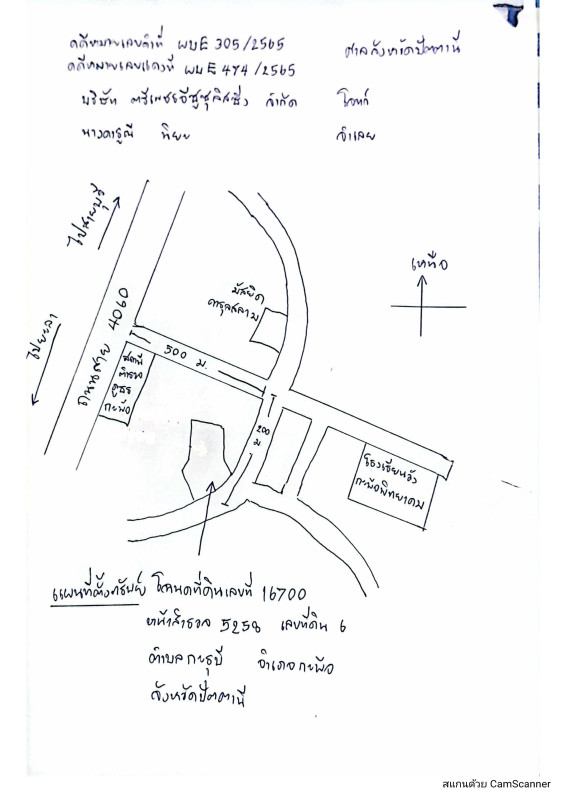 คดีหมายเลขดำที่ ผบE 305/2565 ศาลจังหวัดปัตตานี
คดีหมายเลขแดงที่ ผบE 474/2565
บริษัท ตรีเพชรอีซูซุลิสซิ่ง จำกัด โจทก์
นางดารุณี จำเลย
ไปสายบุรี
เหนือ
มัสยิด
ดารุสสลาม
ไปยะลา
ถนนสาย 4060
500 ม.
สถานี
ตำรวจ
ภูธร
กะพ้อ
200
ม
โรงเรียนวัง
กะพ้อพิทยาคม
แผนที่ตั้งทรัพย์ โฉนดที่ดินเลขที่ 16700
หน้าสำรวจ 5258 เลขที่ดิน 6
ตำบลกะรุบี อำเภอกะพ้อ
จังหวัดปัตตานี
สแกนด้วย CamScanner